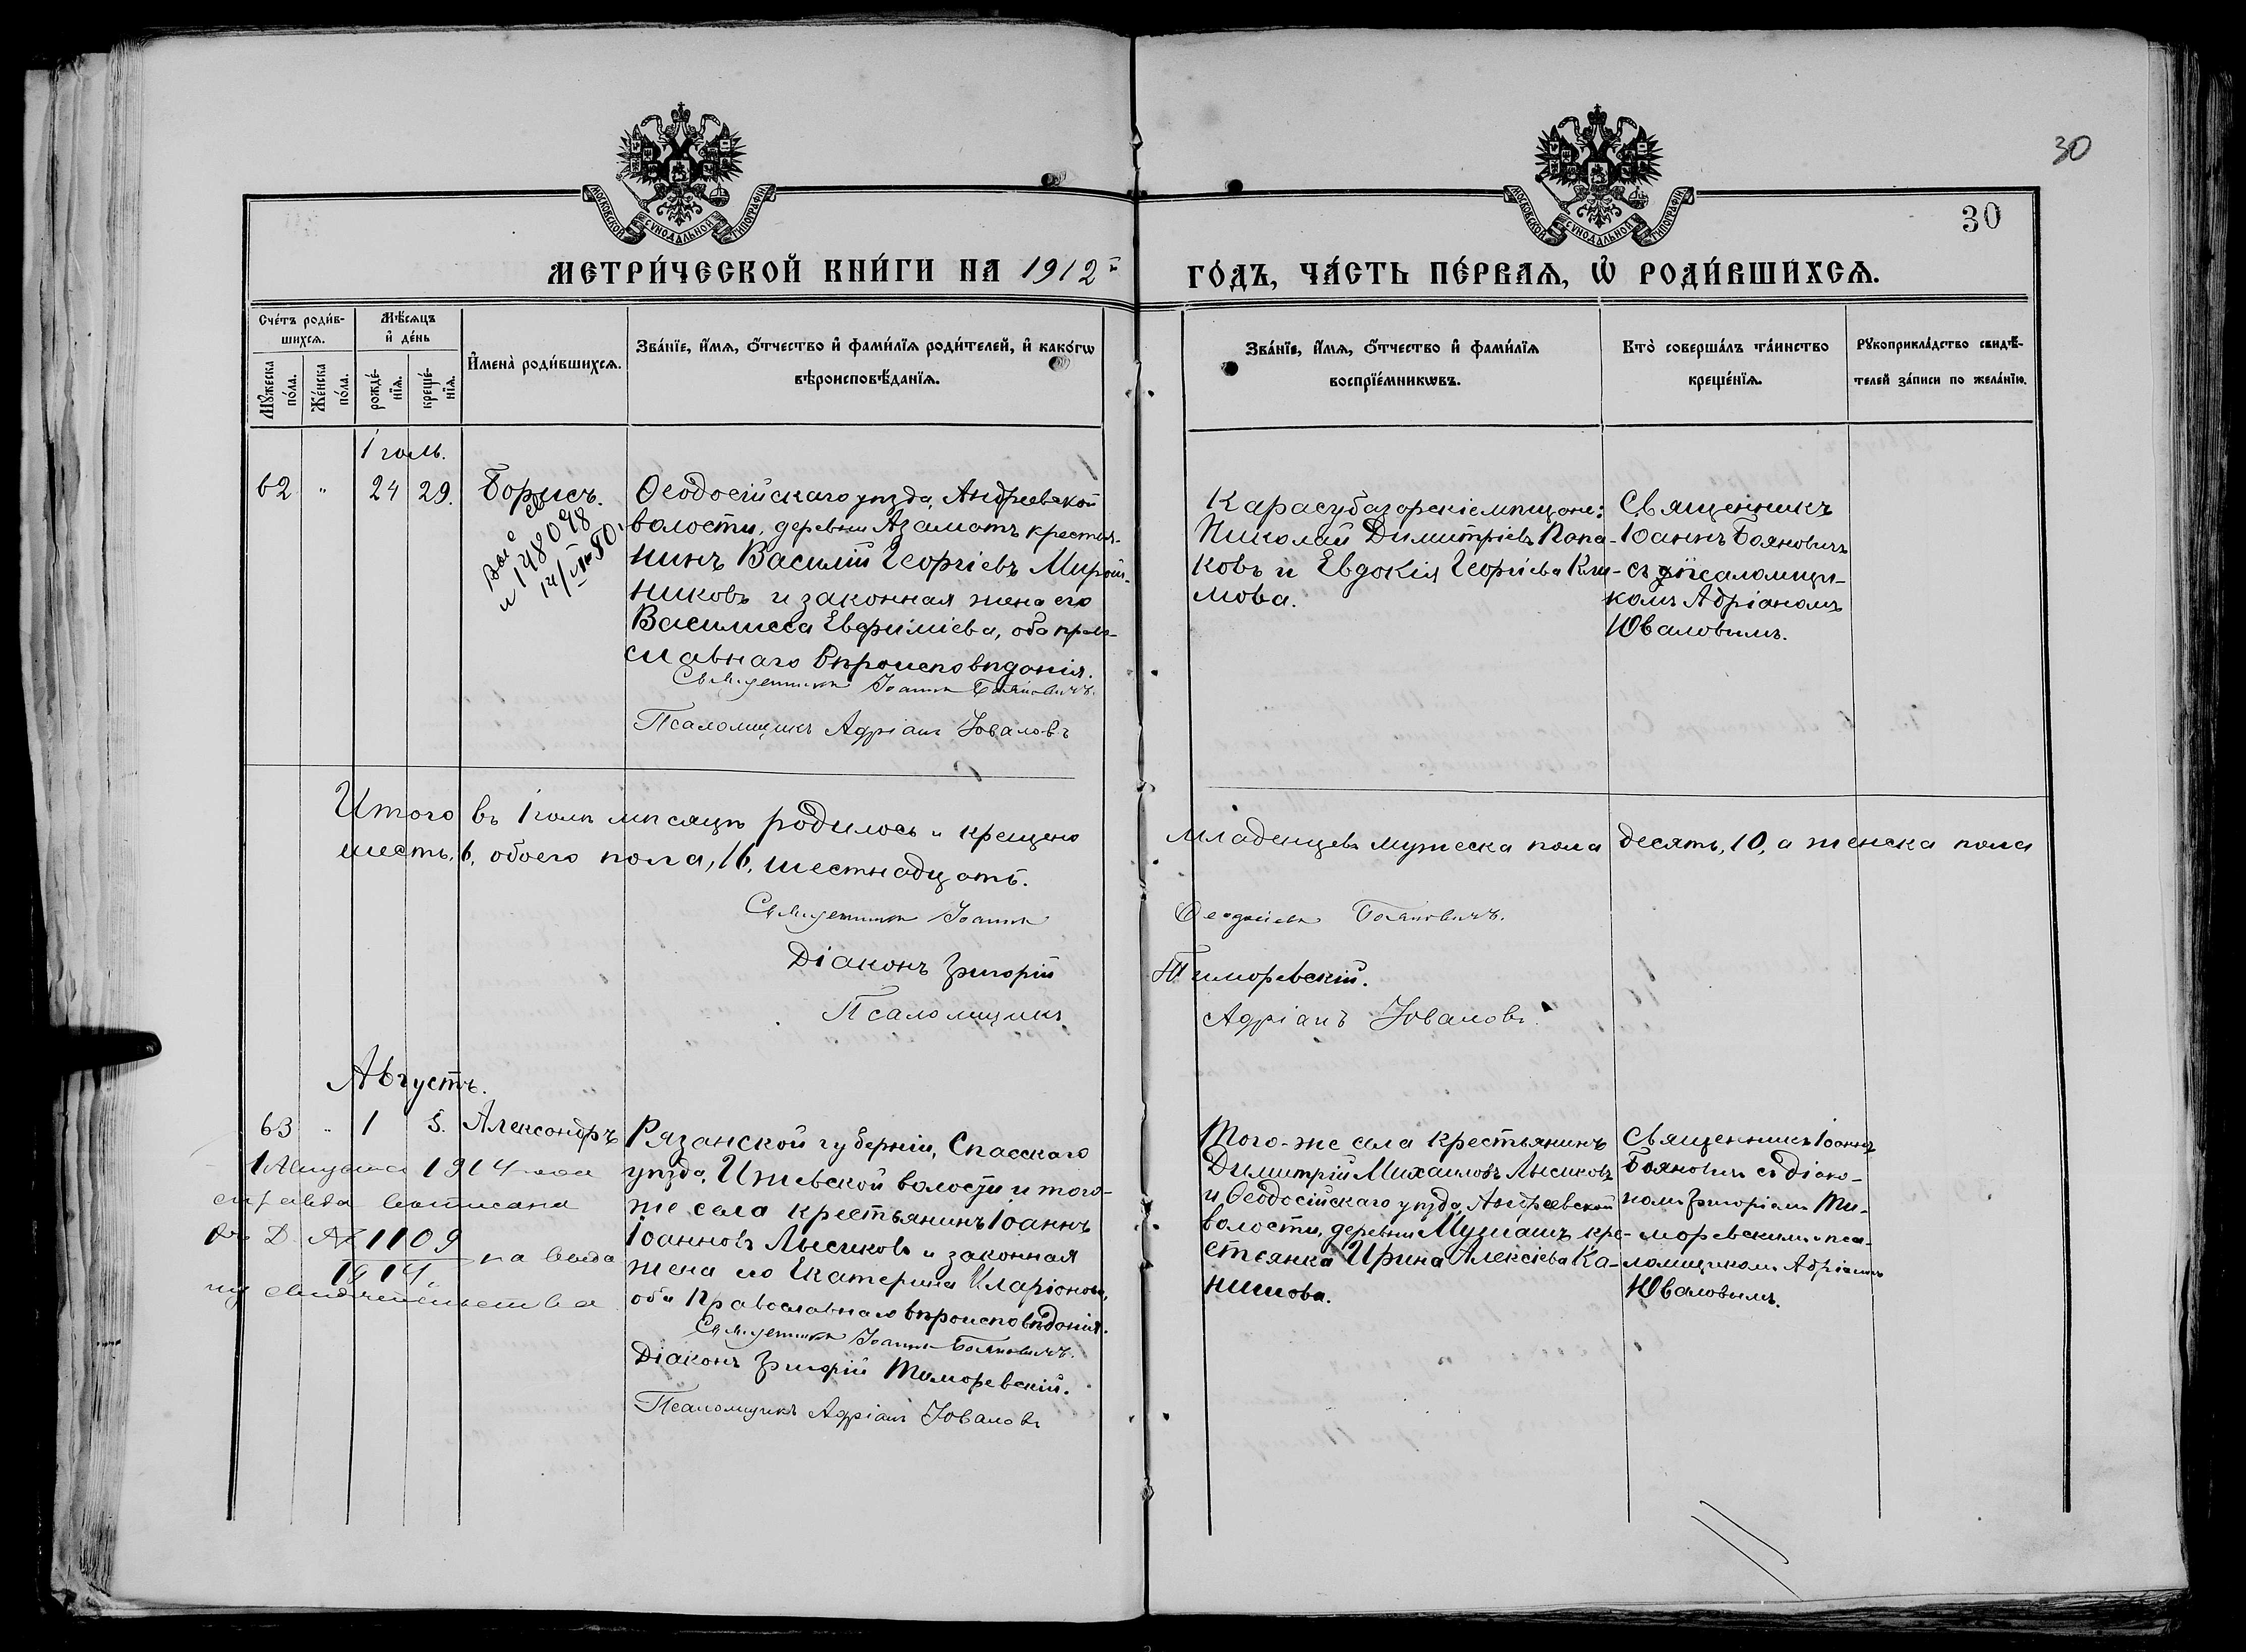 30
30
МОСКОВСКОЙ СѴНОДАЛЬНОЙ ТИПОГРАФІИ
МОСКОВСКОЙ СѴНОДАЛЬНОЙ ТИПОГРАФІИ
МЕТРИ́ЧЕСКОЙ КНИ́ГИ НА 1912 й
ГО́ДЪ, ЧА́СТЬ ПЕ́РВАѦ, Ѡ҆ РОДИ́ВШИХСѦ.
Сче́тъ роди́в-
шихсѧ.
Мꙋ́жеска по́ла.
Же́нска по́ла.
Мѣ́сѧцъ
и҆ де́нь
рожде́-
нїѧ.
креще́-
нїѧ.
И҆мена̀ роди́вшихсѧ.
Зва́нїе, и҆́мѧ, ѻ҆́тчество и҆ фами́лїѧ роди́телей, и҆ како́гѡ
вѣроисповѣ́данїѧ.
Зва́нїе, и҆́мѧ, ѻ҆́тчество и҆ фами́лїѧ
воспрїе́мникѡвъ.
Кто̀ соверша́лъ та́инство
креще́нїѧ.
Рꙋкоприкла́дство свидѣ́-
телей за́писи по жела́нїю.
Іюль.
62 " 24 29. Борисъ.
148098
Ѳеодосійскаго уѣзда, Андреевской
волости, деревни Азаматъ крестья-
нинъ Василій Георгіевъ Мирош-
никовъ и законная жена его
Василисса Евфиміева, оба право-
славнаго вѣроисповѣданія.
Священникъ Іоаннъ Бояновичъ.
Псаломщикъ Адріанъ Юваловъ
Карасубазарскіе мѣщане:
Николай Димитріевъ Попа-
ковъ и Евдокія Георгіева Кли-
мова.
Священникъ
Іоаннъ Бояновичъ
съ псаломщи-
комъ Адріаномъ
Юваловымъ.
Итого въ Іюлѣ мѣсяцѣ родилось и крещено младенцевъ мужеска пола десять, 10, а женска пола
шесть, 6, обоего пола, 16, шестнадцать.
Священникъ Іоаннъ Ѳеодосіевъ Бояновичъ.
Діаконъ Григорій Тиморевскій.
Псаломщикъ Адріанъ Юваловъ.
Августъ.
63 " 1 5. Александръ
1 Августа 1914 года
справка выписана
за Д. № 1109
1914. на выда
чу свидѣтельства
Рязанской губерніи, Спасскаго
уѣзда, Ижевской волости и того-
же села крестьянинъ Іоаннъ
Іоанновъ Лысиковъ и законная
жена его Екатерина Иларіонова,
оба православнаго вѣроисповѣданія.
Священникъ Іоаннъ Бояновичъ.
Діаконъ Григорій Тиморевскій.
Псаломщикъ Адріанъ Юваловъ
Того-же села крестьянинъ
Димитрій Михаиловъ Лысиковъ
и Ѳеодосійскаго уѣзда, Андреевской
волости, деревни Мушашъ кре-
стьянка Ирина Алексіева Ка-
нишова.
Священникъ Іоаннъ
Бояновичъ съ діако-
номъ Григоріемъ Ти-
моревскимъ и пса-
ломщикомъ Адріаномъ
Юваловымъ.